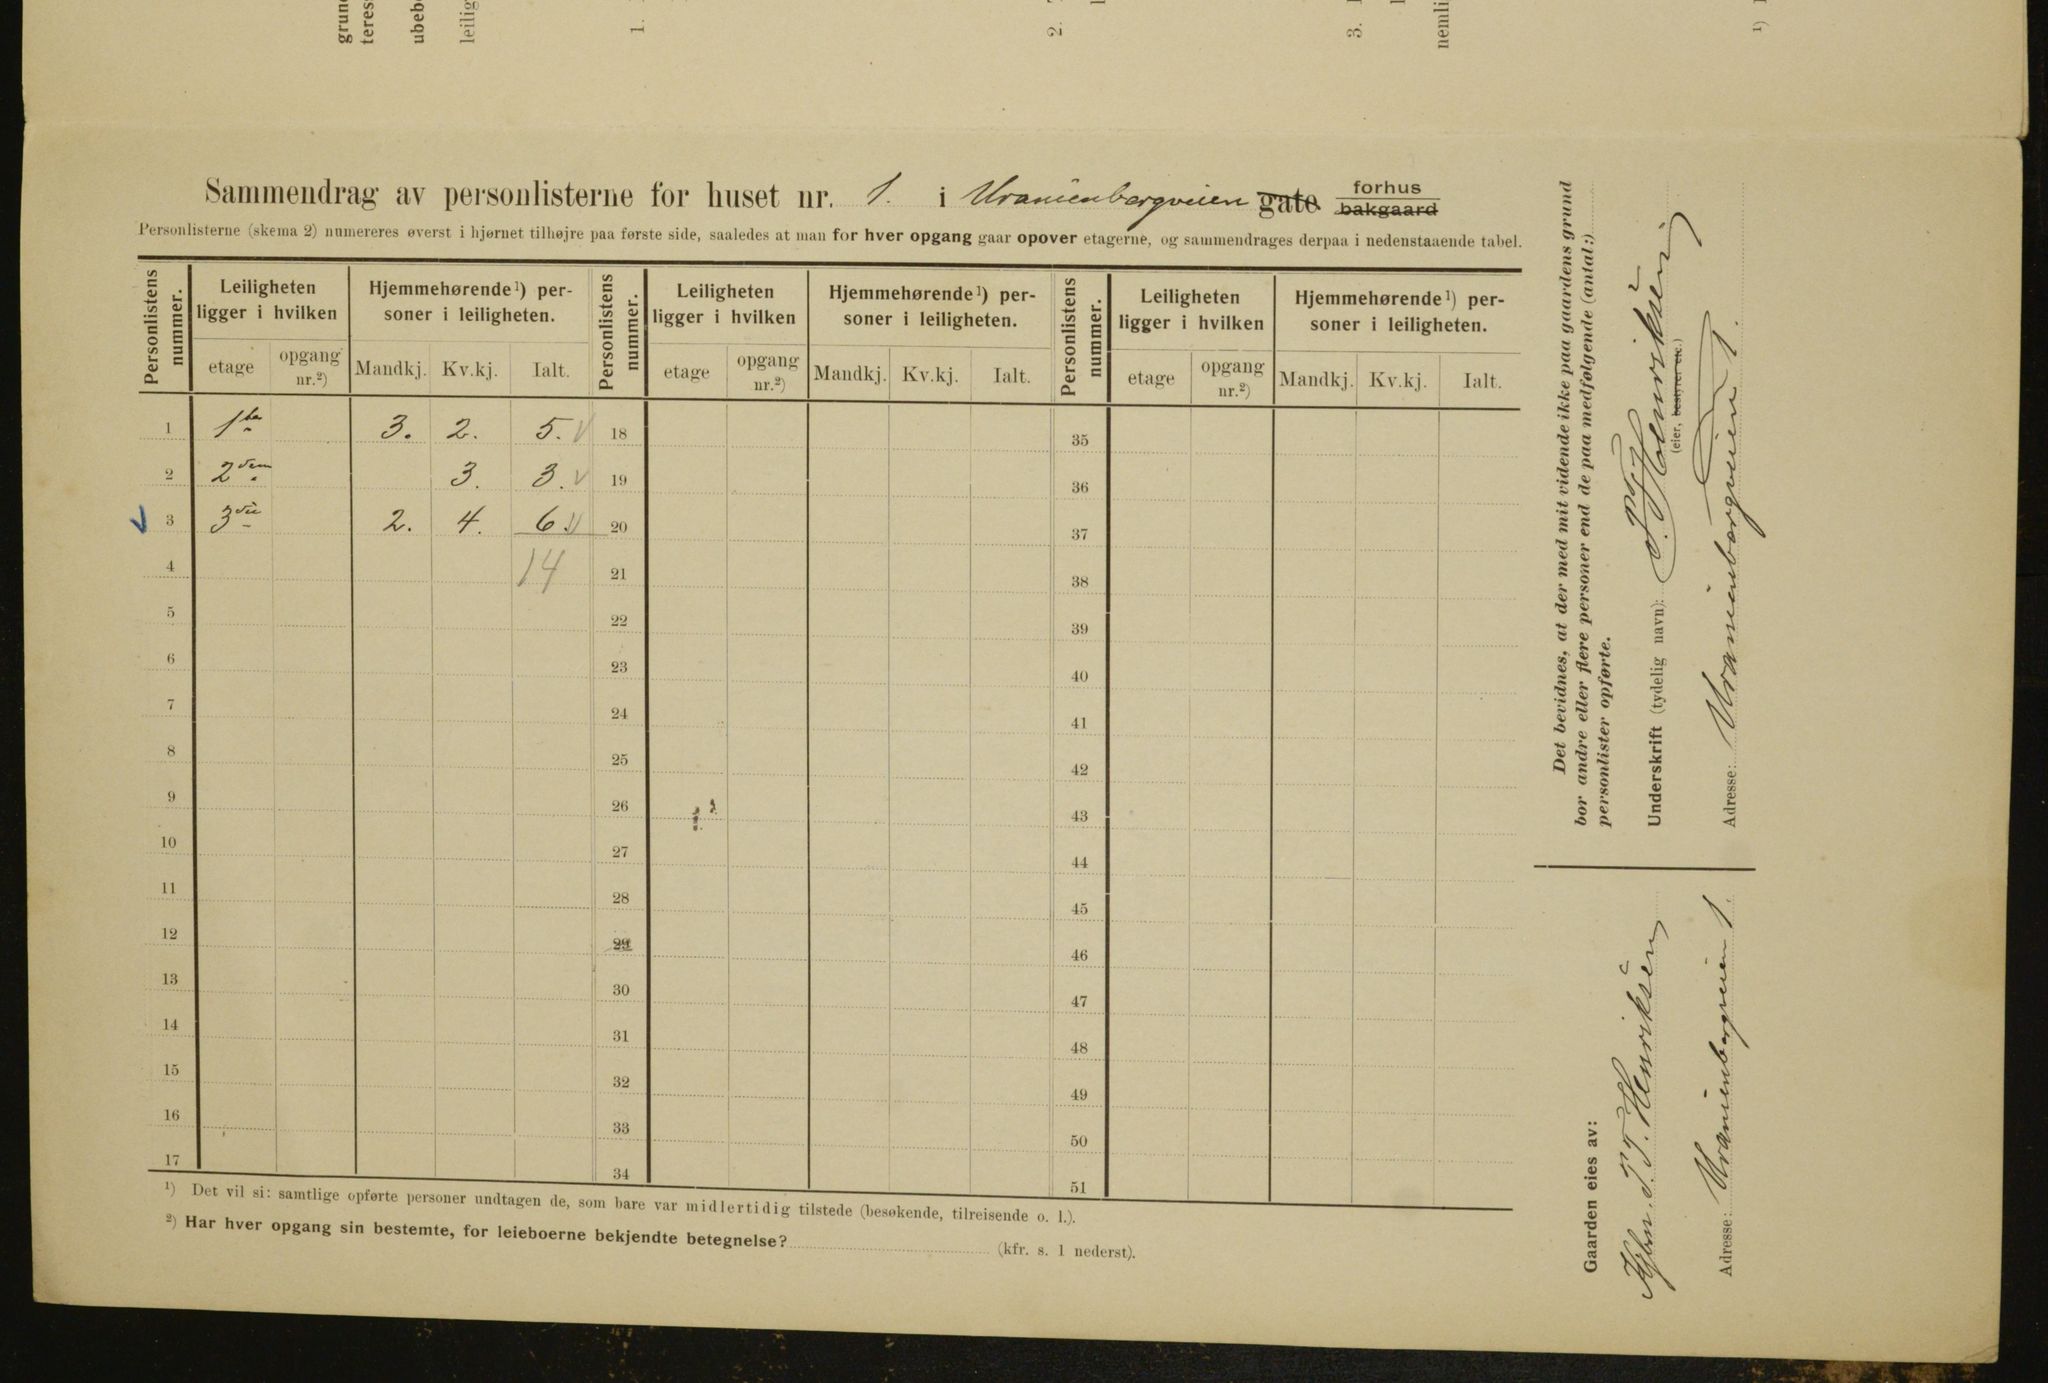 grund
teres
ubeb
leilig
1.
2.
3.
nemli
¹)
Sammendrag av personlisterne for huset nr. 1. i Uranienborgveien gate. forhus
bakgaard
Personlisterne (skema 2) numereres øverst i hjørnet tilhøjre paa første side, saaledes at man for hver opgang gaar opover etagerne, og sammendrages derpaa i nedenstaaende tabel.
Personlistens nummer. | Leiligheten ligger i hvilken | Hjemmehørende¹) personer i leiligheten. | Personlistens nummer. | Leiligheten ligger i hvilken | Hjemmehørende¹) personer i leiligheten. | Personlistens nummer. | Leiligheten ligger i hvilken | Hjemmehørende¹) personer i leiligheten.
etage | opgang nr.²) | Mandkj. | Kv.kj. | Ialt. | etage | opgang nr.²) | Mandkj. | Kv.kj. | Ialt. | etage | opgang nr.²) | Mandkj. | Kv.kj. | Ialt.
1 1ste 3. 2. 5. 18 35
2 2den 3. 3. 19 36
3 3die 2. 4. 6. 20 37
4 14 21 38
5 22 39
6 23 40
7 24 41
8 25 42
9 26 43
10 27 44
11 28 45
12 29 46
13 30 47
14 31 48
15 32 49
16 33 50
17 34 51
¹) Det vil si: samtlige opførte personer undtagen de, som bare var midlertidig tilstede (besøkende, tilreisende o. l.).
²) Har hver opgang sin bestemte, for leieboerne bekjendte betegnelse? (kfr. s. 1 nederst).
Det bevidnes, at der med mit vidende ikke paa gaardens grund
bor andre eller flere personer end de paa medfølgende (antal:)
personlister opførte.
Underskrift (tydelig navn): T. Henriksen
(eier, bestyrer etc.)
Adresse: Uranienborgveien 1.
Gaarden eies av:
T. Henriksen
Adresse: Uranienborgveien 1.